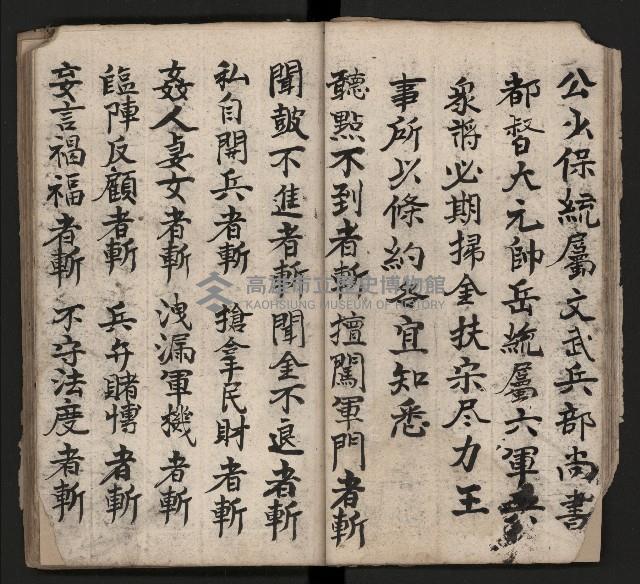 公少保統屬文武兵部尚書
都督大元帥岳統屬六軍兵
眾將必期掃金扶宋尽力王
事所以條約 宜知悉
聽點不到者斬 擅闖軍門者斬
聞皷不進者斬 聞金不退者斬
私自開兵者斬 搶拿民財者斬
姦人妻女者斬 洩漏軍機者斬
臨陣反顧者斬 兵弁賭博者斬
妄言禍福者斬 不守法度者斬
高雄市立歷史博物館
KAOHSIUNG MUSEUM OF HISTORY